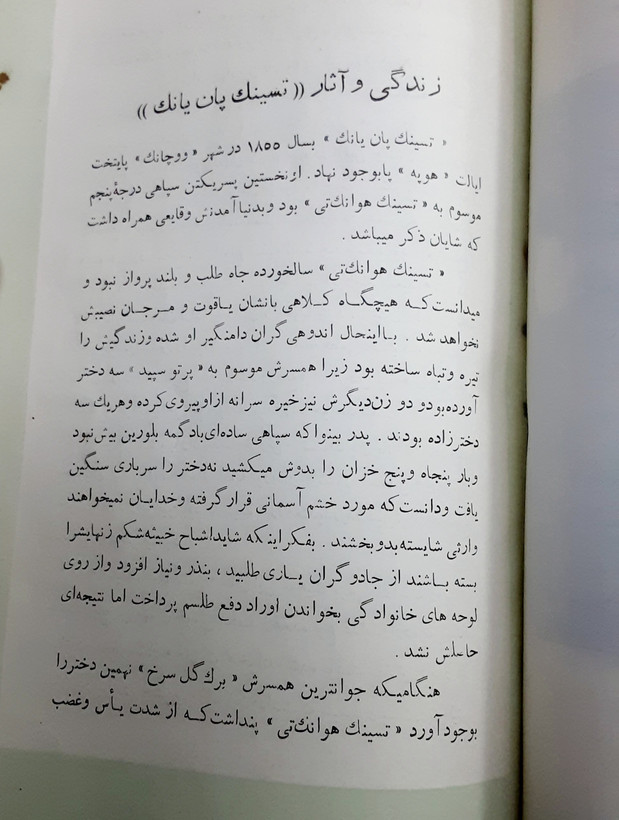 زندگی و آثار (( تسینك پان یانك ))
« تسینك پان یانك » بسال ۱۸۵۵ در شهر « ووچانك » پایتخت
ایالت « هوپه » پا بوجود نهاد . او نخستین پسر یكتن سپاهی درجهٔ پنجم
موسوم به « تسینك هوانك‌تی » بود و بدنیا آمدنش وقایعی همراه داشت
كه شایان ذكر میباشد .
« تسینك هوانك‌تی » سالخورده جاه طلب و بلند پرواز نبود و
میدانست كه هیچگاه كلاهی بانشان یاقوت و مرجان نصیبش
نخواهد شد . با اینحال اندوهی گران دامنگیر او شده و زندگیش را
تیره و تباه ساخته بود زیرا همسرش موسوم به « پرتو سپید » سه دختر
آورده بود و دو زن دیگرش نیز خیره سرانه از او پیروی كرده و هریك سه
دختر زاده بودند . پدر بینوا كه سپاهی ساده‌ای باد گمه بلورین بیش نبود
و بار پنجاه و پنج خزان را بدوش میكشید نه دختر را سرباری سنگین
یافت و دانست كه مورد خشم آسمانی قرار گرفته و خدایان نمیخواهند
وارثی شایسته بدو بخشند . بفكر اینكه شاید اشباح خبیثه شكم زنهایش را
بسته باشند از جادو گران یاری طلبید ، بنذر و نیاز افزود و از روی
لوحه های خانوادگی بخواندن اوراد دفع طلسم پرداخت اما نتیجه‌ای
حاصلش نشد .
هنگامیكه جوانترین همسرش « برك گل سرخ » نهمین دختر را
بوجود آورد « تسینك هوانك‌تی » پنداشت كه از شدت یأس و غضب